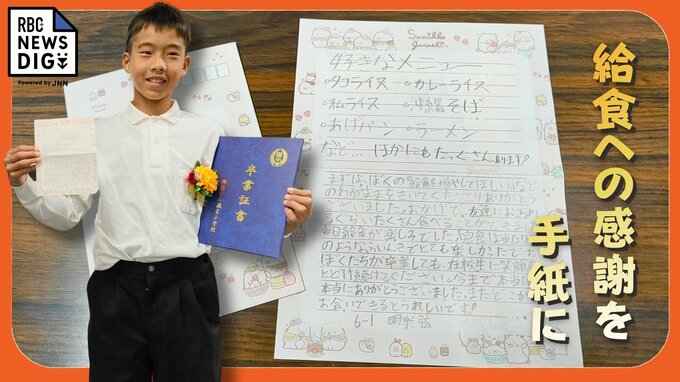 RBC
NEWS
DIG
Powered by JNN
卒業証書
Sumikko
gurashi
好きなメニュー
・タコライス ・カレーライス
・オムライス ・沖縄そば
・あげパン ・ラーメン
など… ほかにもたっくさんあります!
まずは、ぼくの を増やしてほしい!などの
わがままをきいてくださりありがとう
ございました。おかげで、友達に
るぐらいたくさん食べ
毎日給食が楽しみでした。
のような でとても楽しかったです
ぼくたちが卒業しても、在校生に笑顔を
とどけ続けてください。今まで本当に
本当にありがとうございました。またどこかで
お会いできるとうれしいです!
6-1
給食への感謝を
手紙に